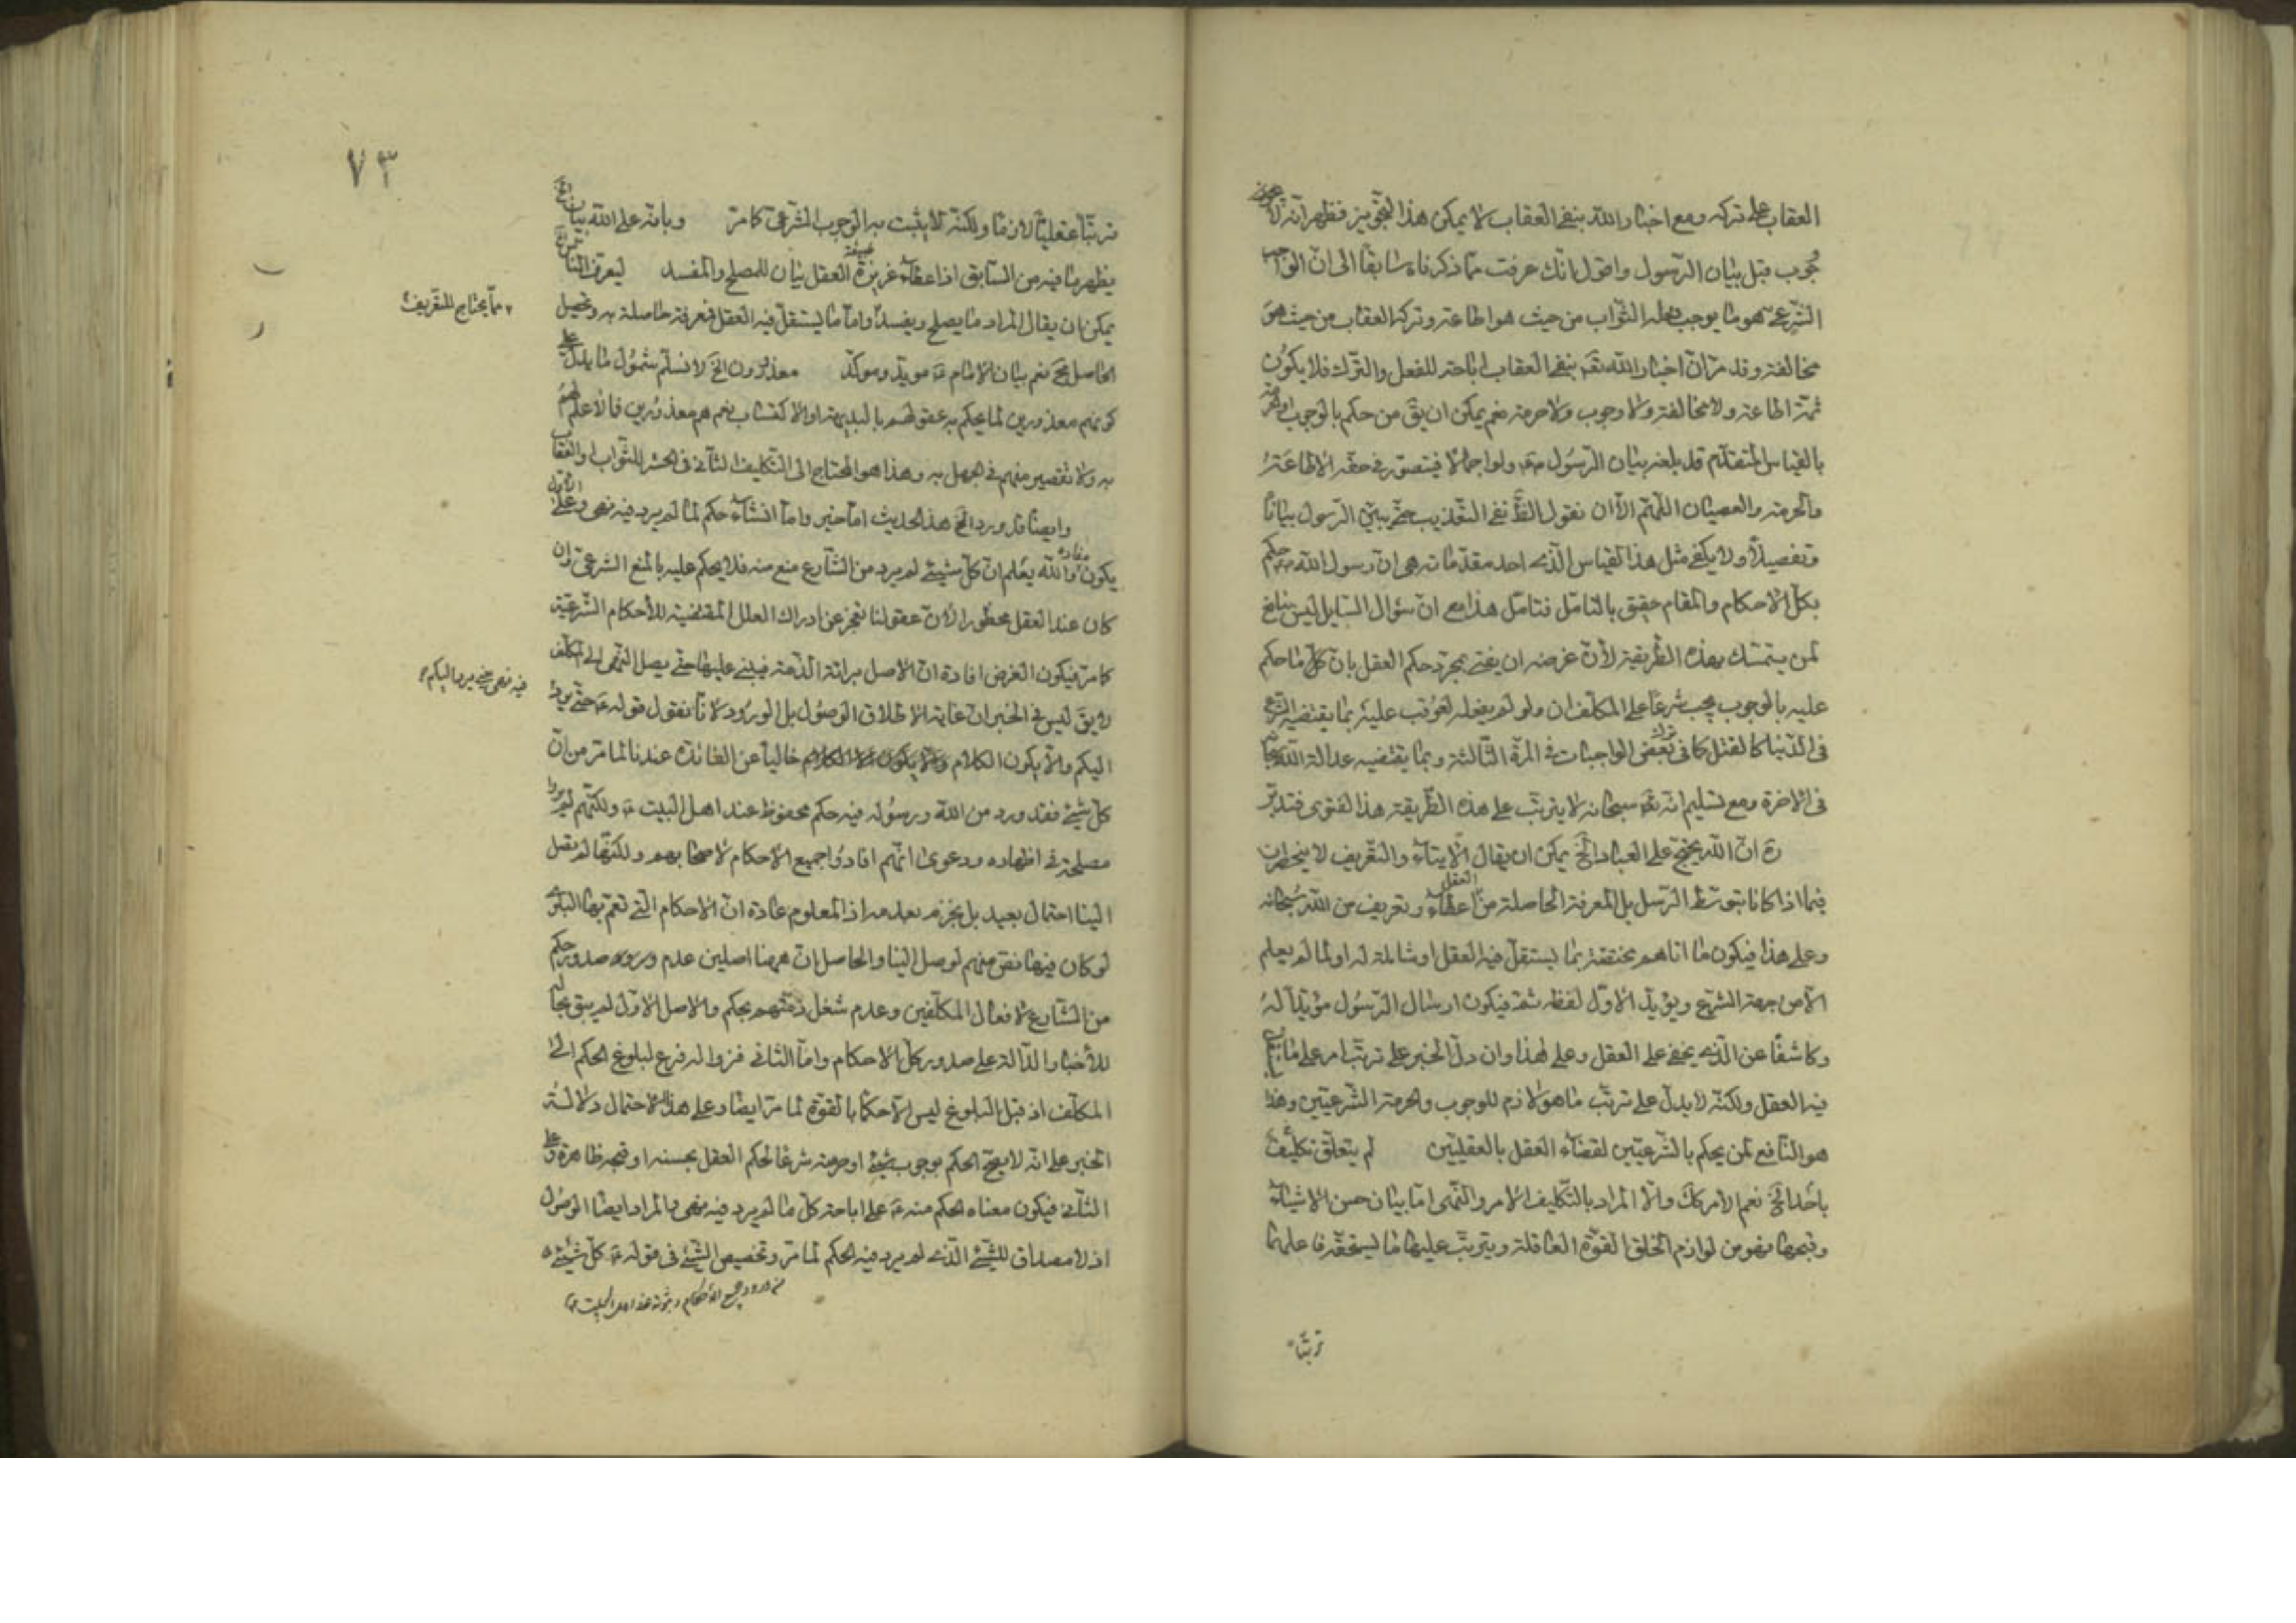 العقاب على تركه ومع اخبار الله بنفى العقاب لا يمكن هذا التجويز فظهر انه لا
وجوب قبل بيان الرسول واقول انك عرفت مما ذكرناه سابقا الى ان الواجب
الشرعى هو ما يوجب فعله الثواب من حيث هو اطاعة وتركه العقاب من حيث هو
مخالفة وقد مر ان اخبار الله تع بنفى العقاب اباحة للفعل والترك فلا يكون
ثمة اطاعة ولا مخالفة ولا وجوب ولا حرمة نعم يمكن ان يق من حكم بالوجوب او الحرمة
بالقياس المتقدم قد بلغه بيان الرسول ولو اجمالا فيتصور فى حقه الاطاعة
والحرمة والعصيان اللهم الا ان نقول نفى التعذيب حتى يبين الرسول بيانا
وتفصيلا ولا يكفى مثل هذا القياس الذى احد مقدماته هى ان رسول الله حكم
بكل الاحكام والمقام حقيق بالتامل فتامل هذا مع ان سؤال السايل ليس بنافع
لمن يتمسك بهذه الطريقة لان غرضه ان يفتى بمجرد حكم العقل بان كل ما حكم
عليه بالوجوب يجب شرعا على المكلف ان ولو لم يفعله لعوقب عليه بما يقتضيه الشرع
فى الدنيا كالقتل كما فى ترك بعض الواجبات فى المرة الثالثة وبما يقتضيه عدالة الله تع
فى الاخرة ومع تسليم انه تع سبحانه لا يترتب على هذه الطريقة هذا الفتوى فتدبر
ان الله يحتج على العباد الخ يمكن ان يقال الايتاء والتعريف لا ينحصران
فيما اذا كانا بتوسط الرسل بل المعرفة الحاصلة من اعطاء العقل وتعريف من الله سبحانه
وعلى هذا فيكون ما اتاهم مختصة بما يستقل فيه العقل او شاملة له او لما لم يعلم
الا من جهة الشرع ويؤيد الاول لفظه ثمة فيكون ارسال الرسول مؤيدا له
وكاشفا عن الذى يخفى على العقل وعلى هذا وان دل الخبر على ترتب امر على ما
فيه العقل ولكنه لا يدل على ترتب ما هو لازم للوجوب والحرمة الشرعيتين وهذا
هو النافع لمن يحكم بالشرعيتين لقضاء العقل بالعقليتين لم يتعلق تكليف
باحد الخ نعم الامر كك والا المراد بالتكليف الامر والنهى اما بيان حسن الاشياء
وقبحها فهو من لوازم الخلق القوة العاقلة ويترتب عليها ما يستحقه فاعلها
ترتبا
٧٣
ترتبا عقليا لازما ولكنه لا يثبت به الوجوب الشرعى كما مر وبانه على الله بيان
يظهر ما فيه من السابق اذ اعطاء غريزة العقل بيان للمصلح والمفسد ليعرف الناس
يمكن ان يقال المراد ما يصلح ويفسد واما ما يستقل فيه العقل فمعرفة حاصلة به وتحصيل
مما يحتاج للتعريف
الحاصل مح نعم بيان الامام مويد وموكد معذورون الخ لا نسلم شمول ما يدل على
كونهم معذورين لما يحكم به عقولهم بالبديهة او الاكتساب نعم هم معذورين فالا علم لهم
به ولا تقصير منهم فى جهل به وهذا هو المحتاج الى التكليف الثانى فى الحشر للثواب والعقاب
وايضا قد ورد الخ هذا الحديث اما خبر واما انشاء حكم لما لم يرد فيه نهى وعلى الاول
يكون مفاده والله يعلم ان كل شيئ لم يرد من الشارع منع منه فلا يحكم عليه بالمنع الشرعى وان
كان عند العقل محظورا لان عقولنا تعجز عن ادراك العلل المقتضية للاحكام الشرعية
كما مر فيكون الغرض افادة ان الاصل برائة الذمة فيبنى عليها حتى يصل النهى الى المكلف
لا يق ليس فى الخبر ان غاية الاطلاق الوصول بل الورود لانا نقول قوله حتى يرد
فيه نهى حتى يرد اليكم
اليكم والا يكون الكلام خاليا عن الفائدة عندنا لما مر من ان
كل شيئ فقد ورد من الله ورسوله فيه حكم محفوظ عند اهل البيت ولكنهم لم يروا
مصلحة فى اظهاره ودعوى انهم افادوا جميع الاحكام لاصحابهم ولكنها لم تصل
الينا احتمال بعيد بل نجزم بعدمه اذ المعلوم عادة ان الاحكام التى تعم بها البلوى
لو كان فيها نص منهم لوصل الينا والحاصل ان ههنا اصلين عدم صدور حكم
من الشارع لافعال المكلفين وعدم شغل ذمتهم بحكم والاصل الاول لم يبق بحاله
للاخبار الدالة على صدور كل الاحكام واما الثانى فزواله فرع لبلوغ الحكم الى
المكلف اذ قبل البلوغ ليس الا حكما بالقوة لما مر ايضا وعلى هذا الاحتمال دلالة
الخبر على انه لا يصح الحكم بوجوب شيئ او حرمته شرعا لحكم العقل بحسنه او قبحه ظاهرة وعلى
الثانى فيكون معناه الحكم منه على اباحة كل ما لم يرد فيه نهى والمراد ايضا الوصول
اذ لا مصداق للشيئ الذى لم يرد فيه الحكم لما مر وتخصيص الشيئ فى قوله كل شيئ
من ورود جميع الاحكام وثبوته عند اهل البيت